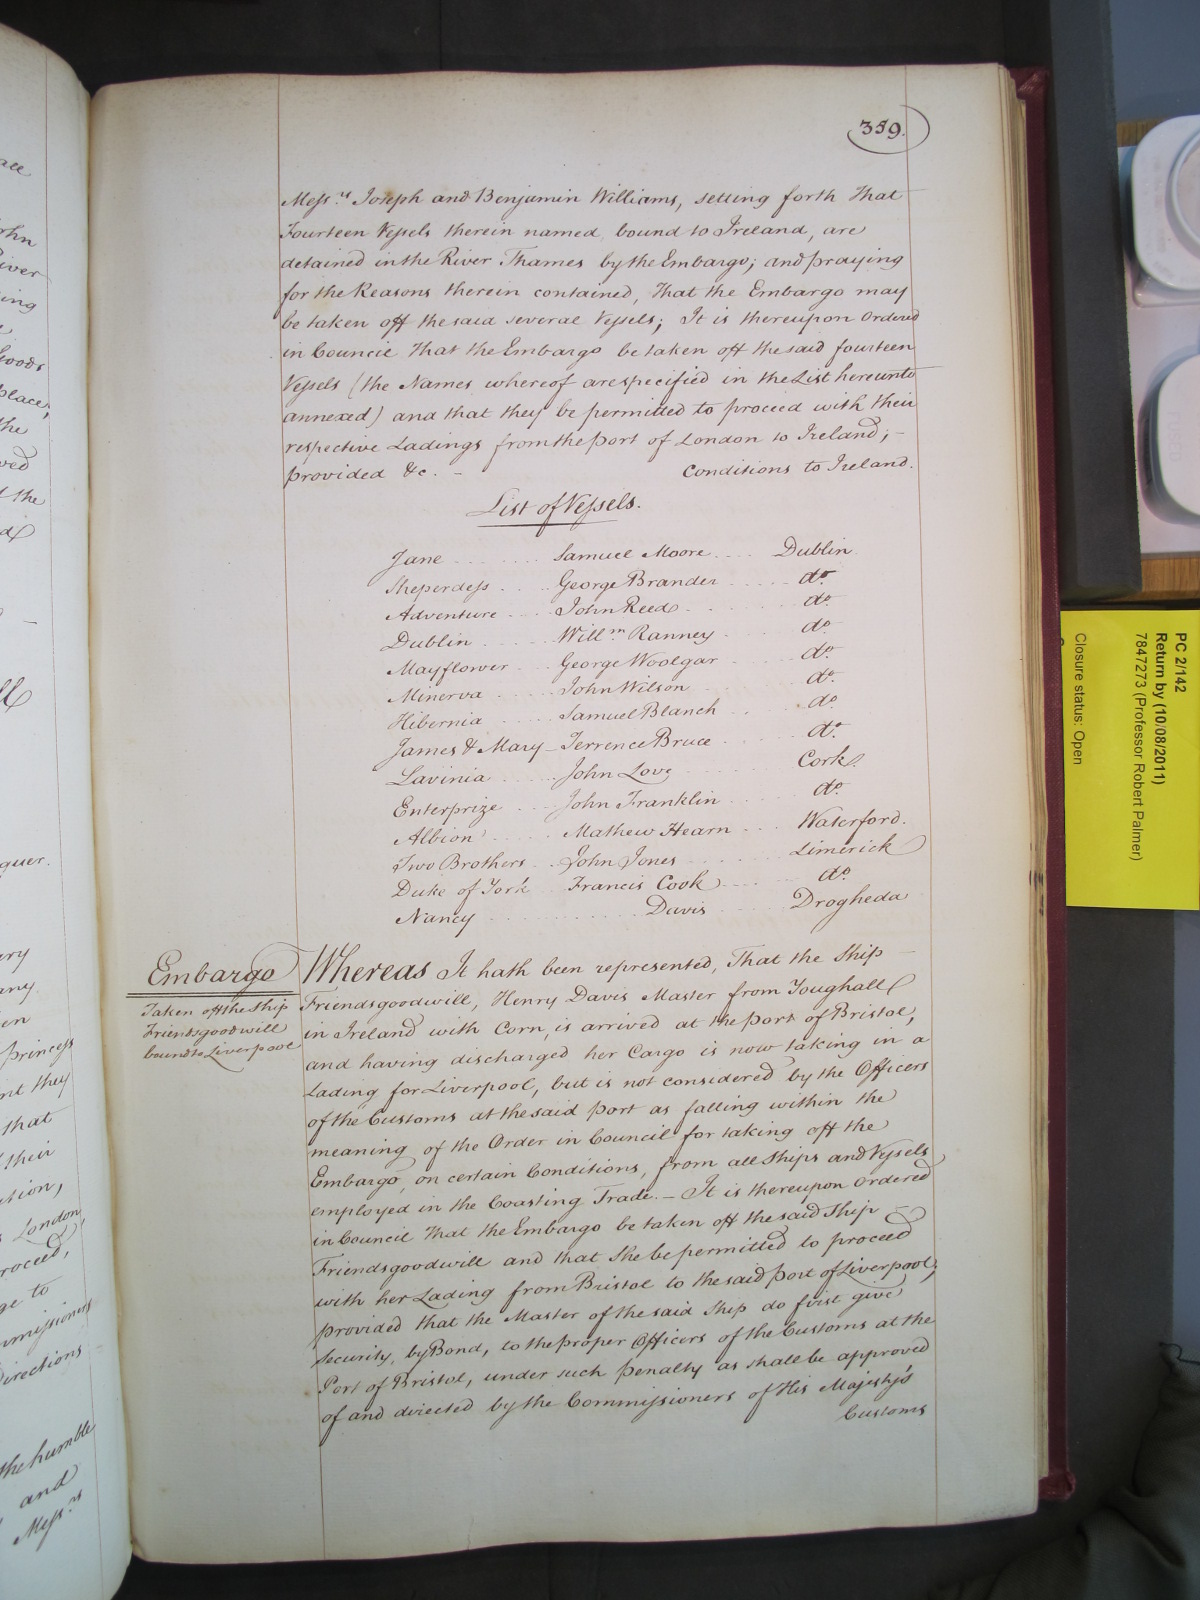 359.
Messrs Joseph and Benjamin Williams, setting forth That
Fourteen Vessels therein named bound to Ireland, are
detained in the River Thames by the Embargo; and praying
for the Reasons therein contained, That the Embargo may
be taken off the said several Vessels; It is thereupon Ordered
in Council That the Embargo be taken off the said fourteen
Vessels (the Names whereof are specified in the List hereunto
annexed) and that they be permitted to proceed with their
respective Ladings from the Port of London to Ireland; -
provided &c. - Conditions to Ireland.
List of Vessels.
Jane ....... Samuel Moore .... Dublin
Sheperdess ... George Brander ..... do
Adventure ... John Reed ..... do
Dublin ...... Willm Ranney ..... do
Mayflower ... George Woolgar .... do
Minerva ..... John Wilson ...... do
Hibernia ..... Samuel Blanch .... do
James & Mary - Terrence Bruce ..... do
Lavinia ...... John Love ....... Cork
Enterprize .... John Franklin ..... do
Albion ...... Mathew Hearn .... Waterford.
Two Brothers ... John Jones ....... Limerick
Duke of York ... Francis Cook .... do
Nancy ............ Davis ....... Drogheda
Embargo
Taken off the Ship
Friendsgoodwill
bound to Liverpool
Whereas It hath been represented, That the Ship -
Friendsgoodwill, Henry Davis Master from Youghall
in Ireland with Corn, is arrived at the Port of Bristol,
and having discharged her Cargo is now taking in a
Lading for Liverpool, but is not considered by the Officers
of the Customs at the said Port as falling within the
meaning of the Order in Council for taking off the
Embargo, on certain Conditions, from all Ships and Vessels
employed in the Coasting Trade. - It is thereupon Ordered
in Council That the Embargo be taken off the said Ship
Friendsgoodwill and that She be permitted to proceed
with her Lading from Bristol to the said Port of Liverpool;
provided that the Master of the said Ship do first give
Security, by Bond, to the proper Officers of the Customs at the
Port of Bristol, under such Penalty as shall be approved
of and directed by the Commissioners of His Majesty's
Customs
PC 2/142
Return by (10/08/2011)
7847273 (Professor Robert Palmer)
Closure status: Open
River
Goods
place,
the
the
quer.
any
Princess
they
that
their
London
to
the humble
and
Messrs